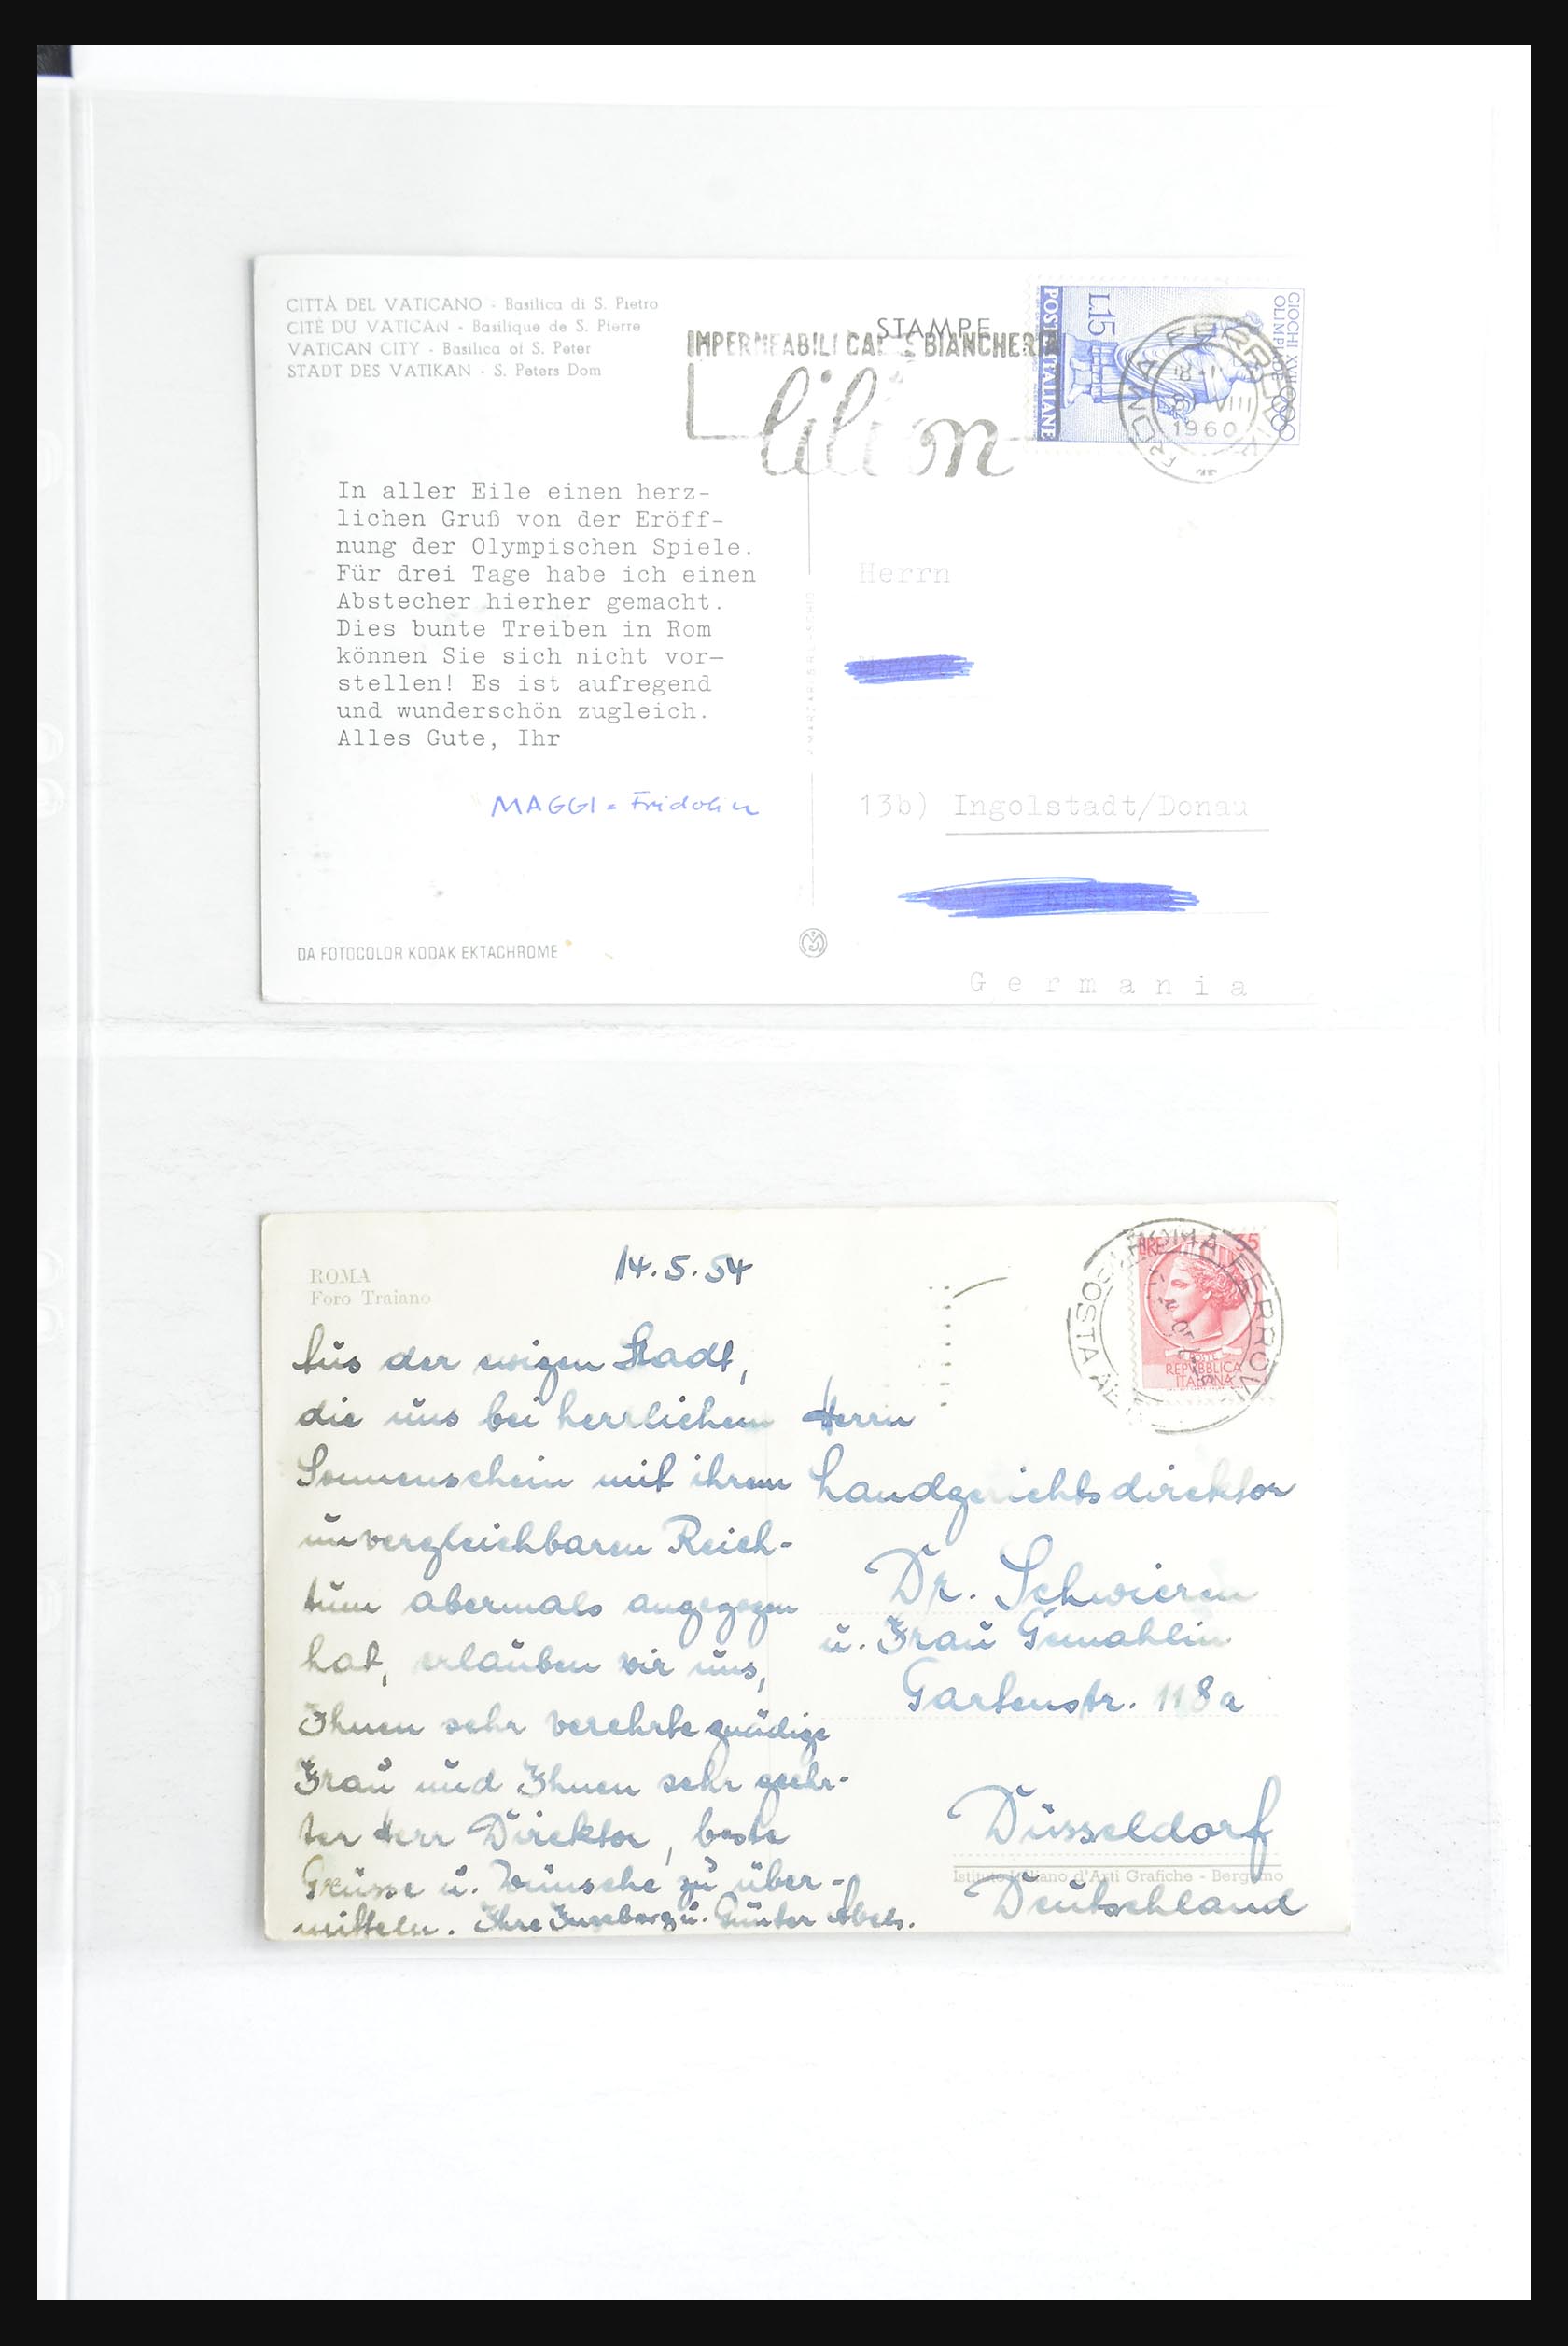 CITTÀ DEL VATICANO - Basilica di S. Pietro
CITÉ DU VATICAN - Basilique de S. Pierre
VATICAN CITY - Basilica of S. Peter
STADT DES VATIKAN - S. Peters Dom
STAMPE
IMPERMEABILI CALZE BIANCHERIA
lilion
POSTE ITALIANE
L.15
GIOCHI XVII
OLIMPIADE
ROMA FERROVIA
VIII
1960
In aller Eile einen herz-
lichen Gruß von der Eröff-
nung der Olympischen Spiele.
Für drei Tage habe ich einen
Abstecher hierher gemacht.
Dies bunte Treiben in Rom
können Sie sich nicht vor-
stellen! Es ist aufregend
und wunderschön zugleich.
Alles Gute, Ihr
MAGGI = Fridolin
Herrn
13b) Ingolstadt/Donau
Germania
DA FOTOCOLOR KODAK EKTACHROME
ROMA
Foro Traiano
14.5.54
Aus der ewigen Stadt,
die uns bei herrlichem
Sonnenschein mit ihrem
unvergleichbaren Reich-
tum abermals angezogen
hat, erlauben wir uns,
Ihnen sehr verehrte gnädige
Frau und Ihnen sehr geehr-
ter Herr Direktor, beste
Grüsse u. Wünsche zu über-
mitteln. Ihre Ingeborg u. Günter Abels.
LIRE 35
POSTE
REPUBBLICA
ITALIANA
ROMA FERROVIA
POSTA AE
Herrn
Landgerichtsdirektor
Dr. Schwieren
u. Frau Gemahlin
Gartenstr. 118a
Düsseldorf
Istituto Italiano d'Arti Grafiche - Bergamo
Deutschland